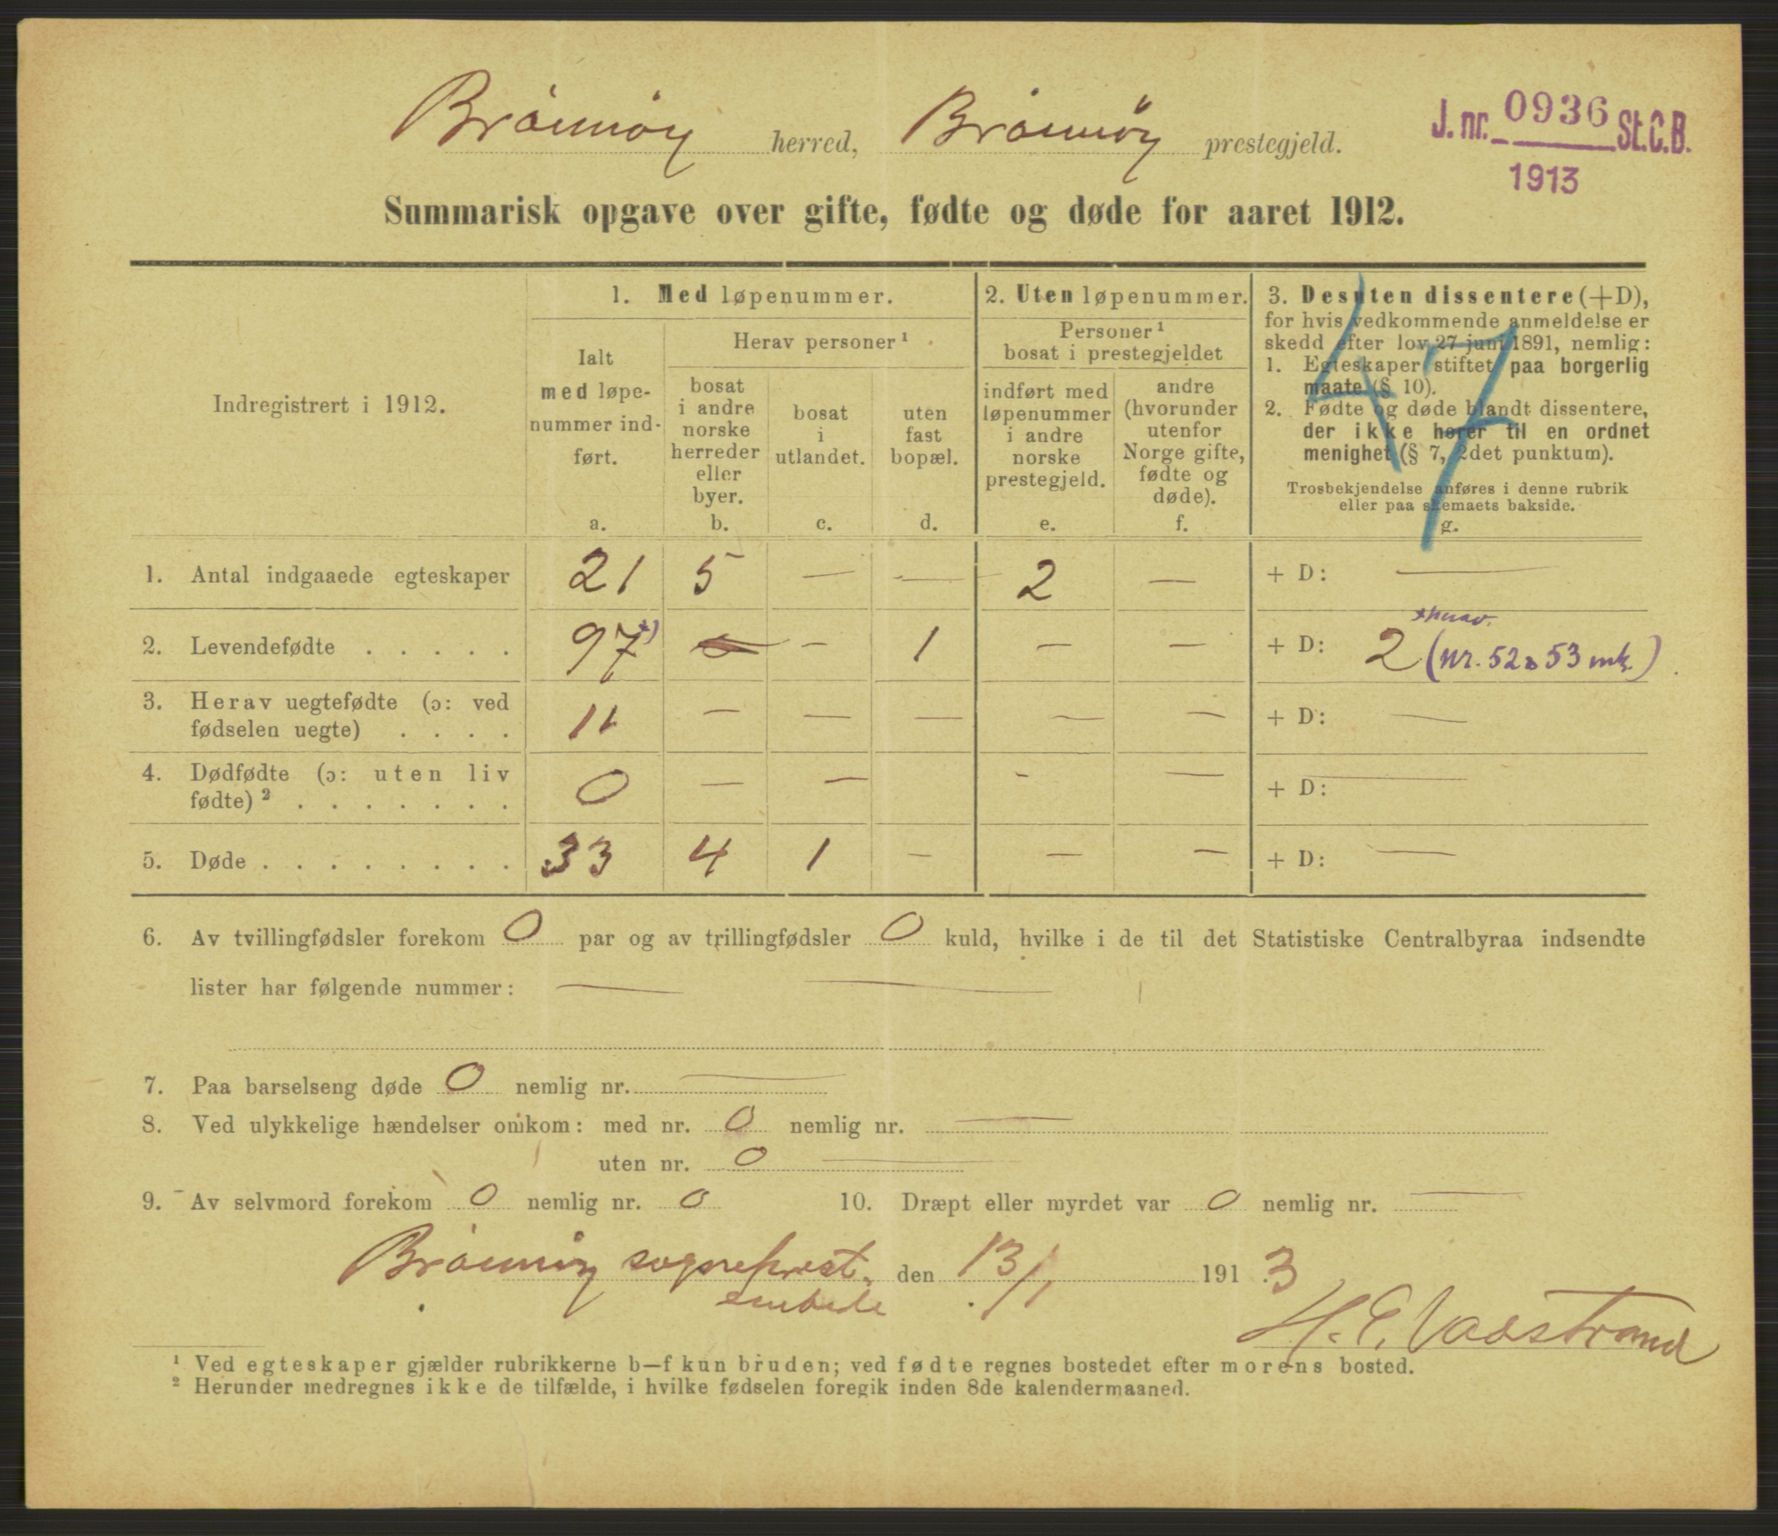 Brønnøy herred, Brønnøy prestegjeld.
J. nr. 0936 St.C.B.
1913
Summarisk opgave over gifte, fødte og døde for aaret 1912.
Indregistrert i 1912.
1. Med løpenummer.
Ialt
med løpe-
nummer ind-
ført.
a.
Herav personer ¹
bosat
i andre
norske
herreder
eller
byer.
b.
bosat
i
utlandet.
c.
uten
fast
bopæl.
d.
2. Uten løpenummer.
Personer ¹
bosat i prestegjeldet
indført med
løpenummer
i andre
norske
prestegjeld.
e.
andre
(hvorunder
utenfor
Norge gifte,
fødte og
døde).
f.
3. Desuten dissentere (+D),
for hvis vedkommende anmeldelse er
skedd efter lov 27 juni 1891, nemlig:
1. Egteskaper stiftet paa borgerlig
maate (§ 10).
2. Fødte og døde blandt dissentere,
der ikke hører til en ordnet
menighet (§ 7, 2det punktum).
Trosbekjendelse anføres i denne rubrik
eller paa skemaets bakside.
g.
47
1. Antal indgaaede egteskaper 21 5 — — 2 — + D: —
2. Levendefødte . . . . . 97 *) — 1 — — + D: 2 (nr. 52 & 53 mk.)
3. Herav uegtefødte (ɔ: ved
fødselen uegte) . . . . 11 — — — — — + D: —
4. Dødfødte (ɔ: uten liv
fødte) ² . . . . . . . 0 — — - — + D: —
5. Døde . . . . . . . . 33 4 1 — — — + D: —
6. Av tvillingfødsler forekom 0 par og av trillingfødsler 0 kuld, hvilke i de til det Statistiske Centralbyraa indsendte
lister har følgende nummer: — —
7. Paa barselseng døde 0 nemlig nr. —
8. Ved ulykkelige hændelser omkom: med nr. 0 nemlig nr. —
uten nr. 0 —
9. Av selvmord forekom 0 nemlig nr. 0 10. Dræpt eller myrdet var 0 nemlig nr. —
Brønnøy sogneprest- den 13/1 1913
embede
H. E. Vaastrand
¹ Ved egteskaper gjælder rubrikkerne b—f kun bruden; ved fødte regnes bostedet efter morens bosted.
² Herunder medregnes ikke de tilfælde, i hvilke fødselen foregik inden 8de kalendermaaned.